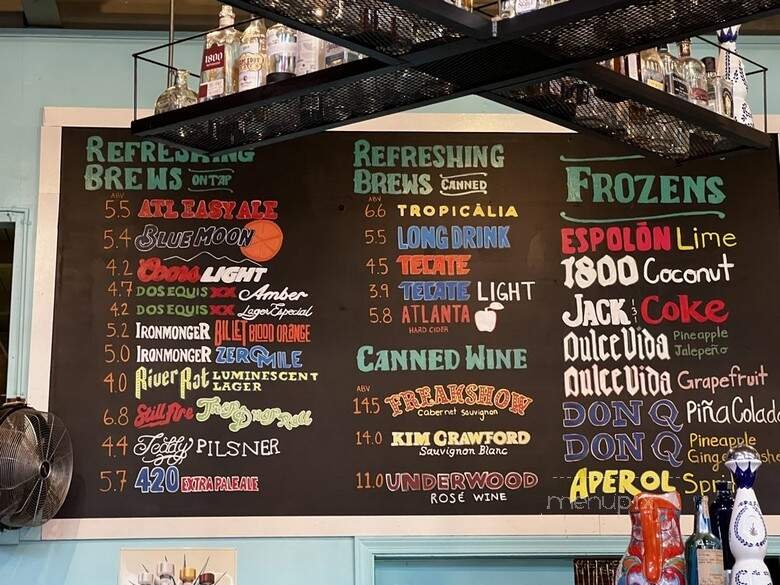 1800
REFRESHING
BREWS ON TAP
ABV
5.5 ATL EASY ALE
5.4 BLUE MOON
4.2 Coors LIGHT
4.7 DOS EQUIS XX Amber
4.2 DOS EQUIS XX Lager Especial
5.2 IRONMONGER BILLET BLOOD ORANGE
5.0 IRONMONGER ZERO MILE
4.0 River Rat LUMINESCENT
LAGER
6.8 Still Fire
4.4 PILSNER
5.7 420 EXTRA PALE ALE
REFRESHING
BREWS CANNED
ABV
6.6 TROPICÁLIA
5.5 LONG DRINK
4.5 TECATE
3.9 TECATE LIGHT
5.8 ATLANTA
HARD CIDER
CANNED WINE
ABV
14.5 FREAKSHOW
cabernet sauvignon
14.0 KIM CRAWFORD
Sauvignon Blanc
11.0 UNDERWOOD
ROSÉ WINE
FROZENS
ESPOLÒN Lime
1800 Coconut
JACK & Coke
Dulce Vida Pineapple
Jalepeño
Dulce Vida Grapefruit
DON Q Piña Colada
DON Q Pineapple
APEROL
menupix